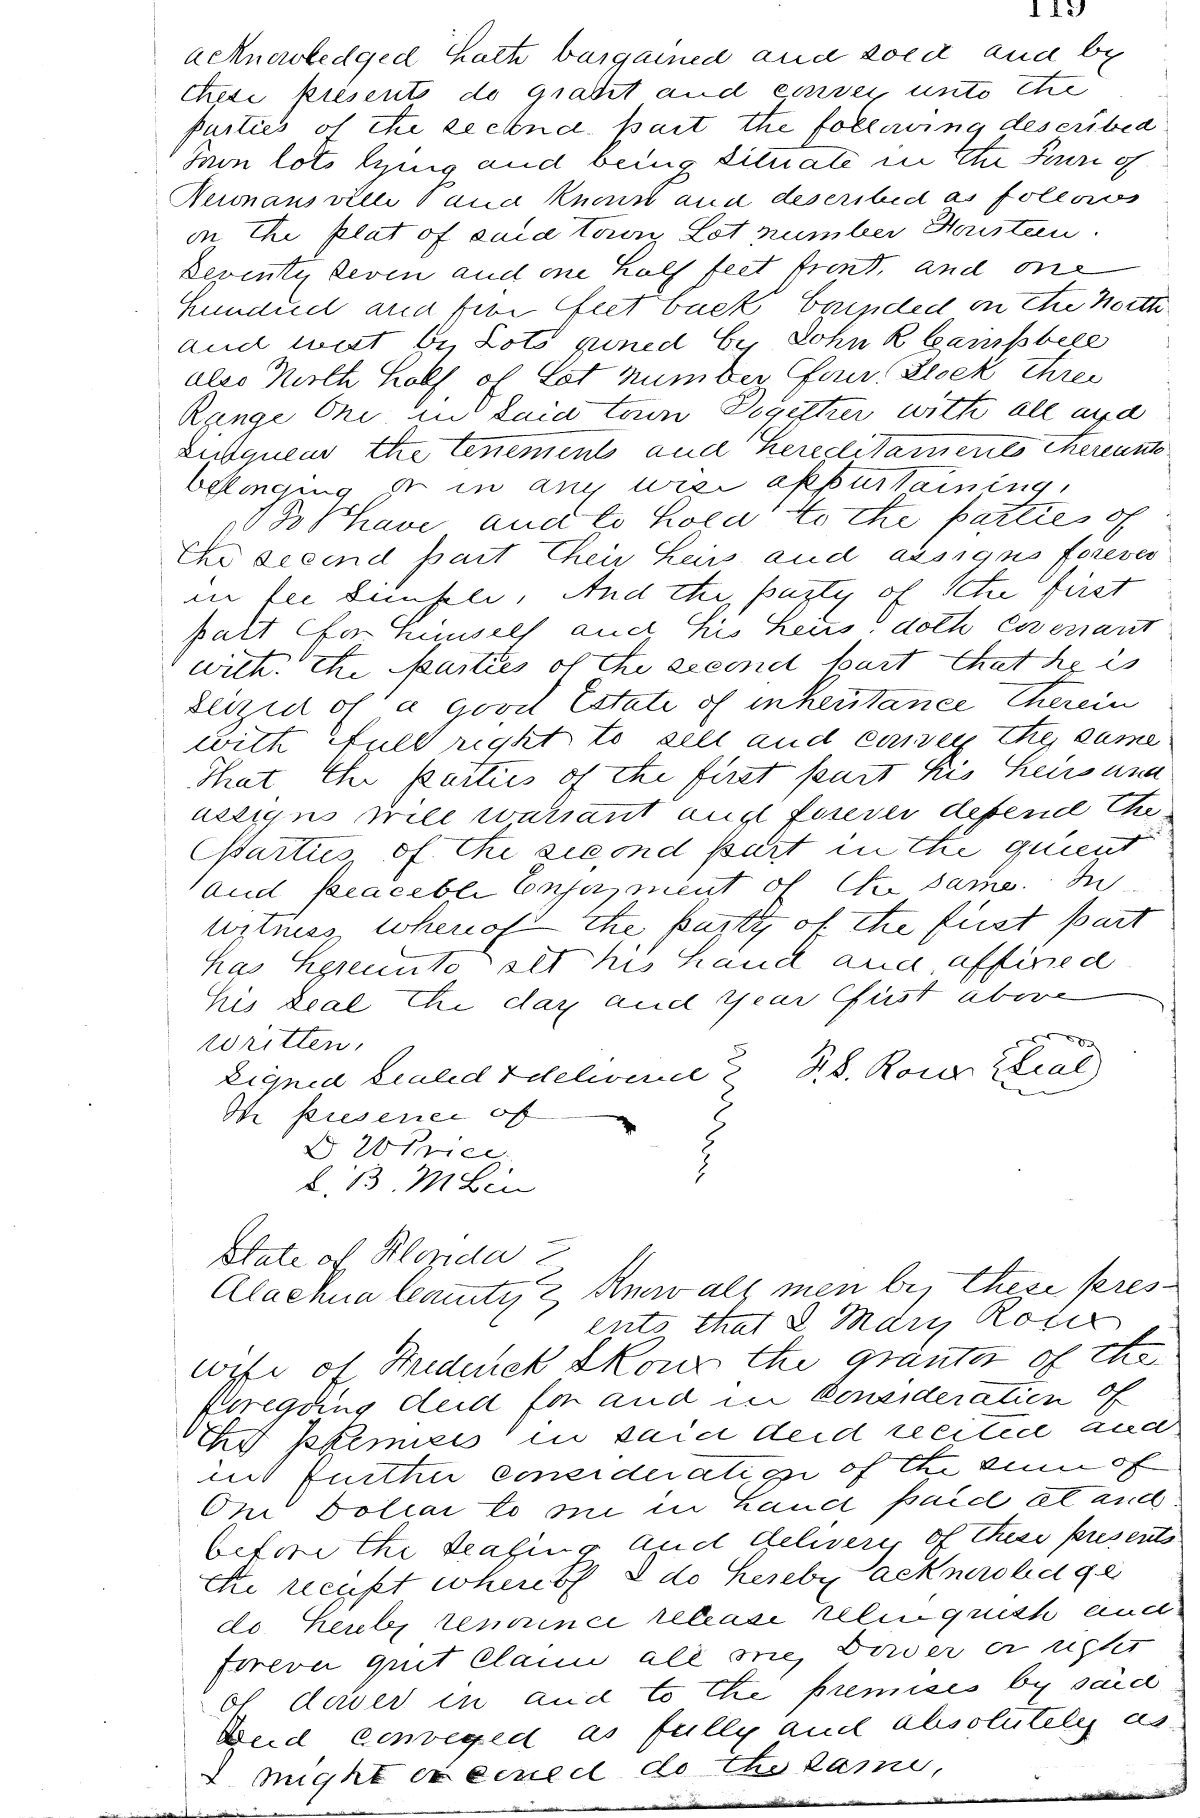 119
acknowledged hath bargained and sold and by
these presents do grant and convey unto the
parties of the second part the following described
Town lots lying and being situate in the Town of
Newnansville and known and described as follows
on the plat of said town Lot number
Seventy seven and one half feet front. and one
hundred and five feet back bounded on the North
and west by Lots owned by John R Campbell
also North half of Lot number four. Block three
Range One in said town Together with all and
Singular the tenements and hereditaments thereunto
belonging or in any wise appurtaining.
To have and to hold to the parties of
the second part their heirs and assigns forever
in fee simple. And the party of the first
part for himself and his heirs doth covenant
with the parties of the second part that he is
Seized of a good Estate of inheritance therein
with full right to sell and convey the same
That the parties of the first part his heirs and
assigns will warrant and forever defend the
Parties of the second part in the quient
and peaceble Enjoyment of the same. In
witness whereof the party of the first part
has hereunto set his hand and affixed
his seal the day and year first above
written.
Signed Sealed & delivered F.S. Roux Seal
In presence of
D W Price
L. B. McLin
State of Florida
Alachua County Know all men by these pres-
ents that I Mary Roux
wife of Frederick S Roux the grantor of the
foregoing deed for and in consideration of
the premises in said deed recited and
in further consideration of the sum of
One Dollar to me in hand paid at and
before the sealing and delivery of these presents
the receipt whereof I do hereby acknowledge
do hereby renounce release relinquish and
forever quit claim all my Dower or right
of dower in and to the premises by said
Deed conveyed as fully and absolutely as
I might or could do the same.